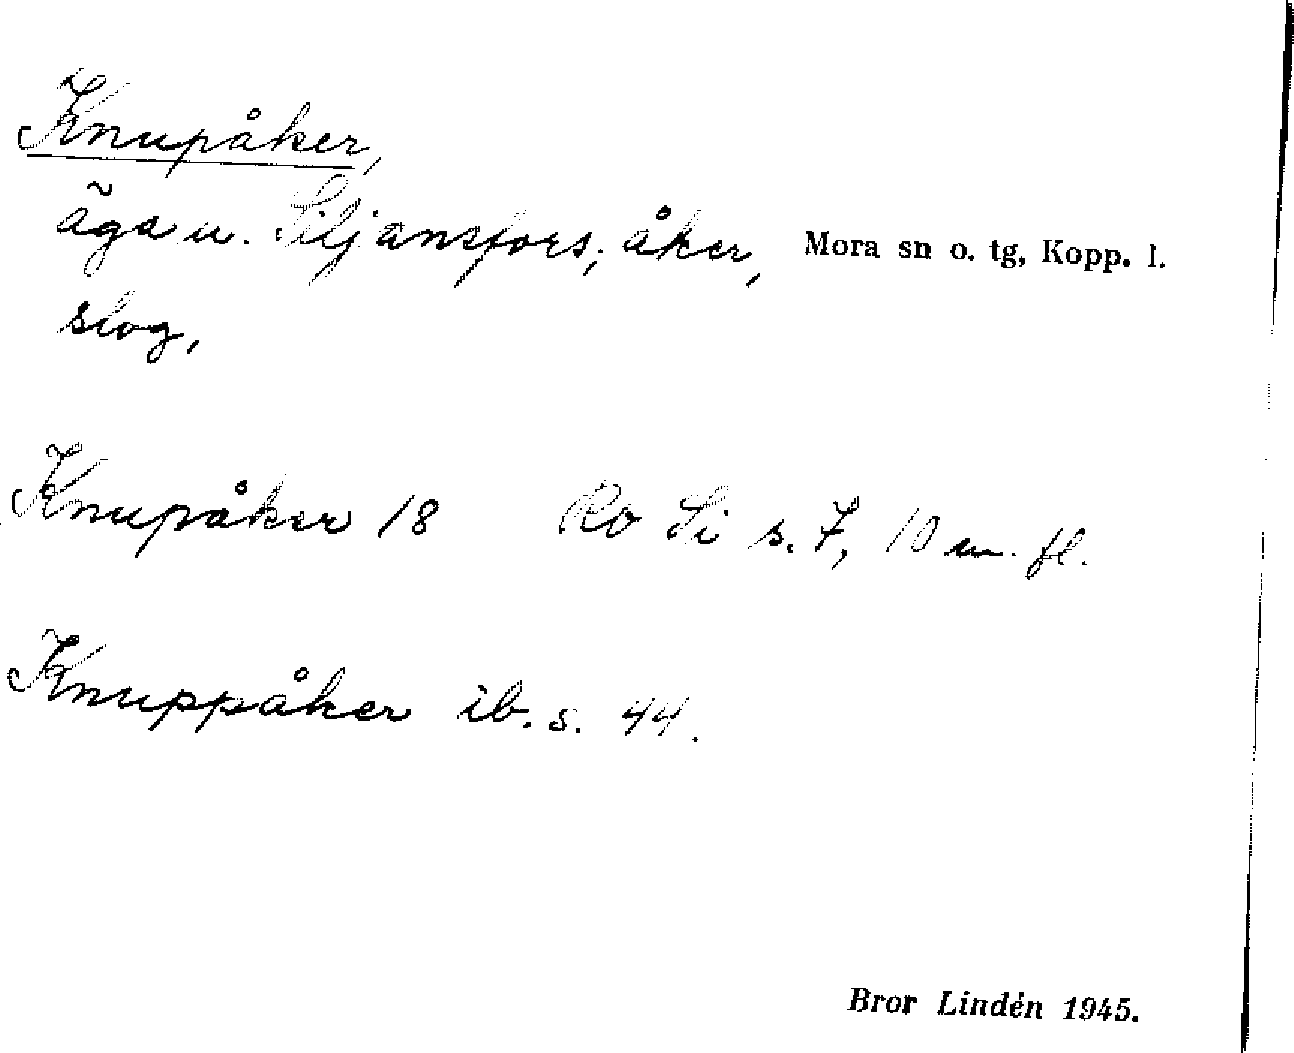 Knupåker,
äga u. Siljansfors; åker, Mora sn o. tg, Kopp. l.
slog,
Knupåker 18 Ro Si s. 7, 10 m. fl.
Knuppåker ib. s. 44.
Bror Lindén 1945.